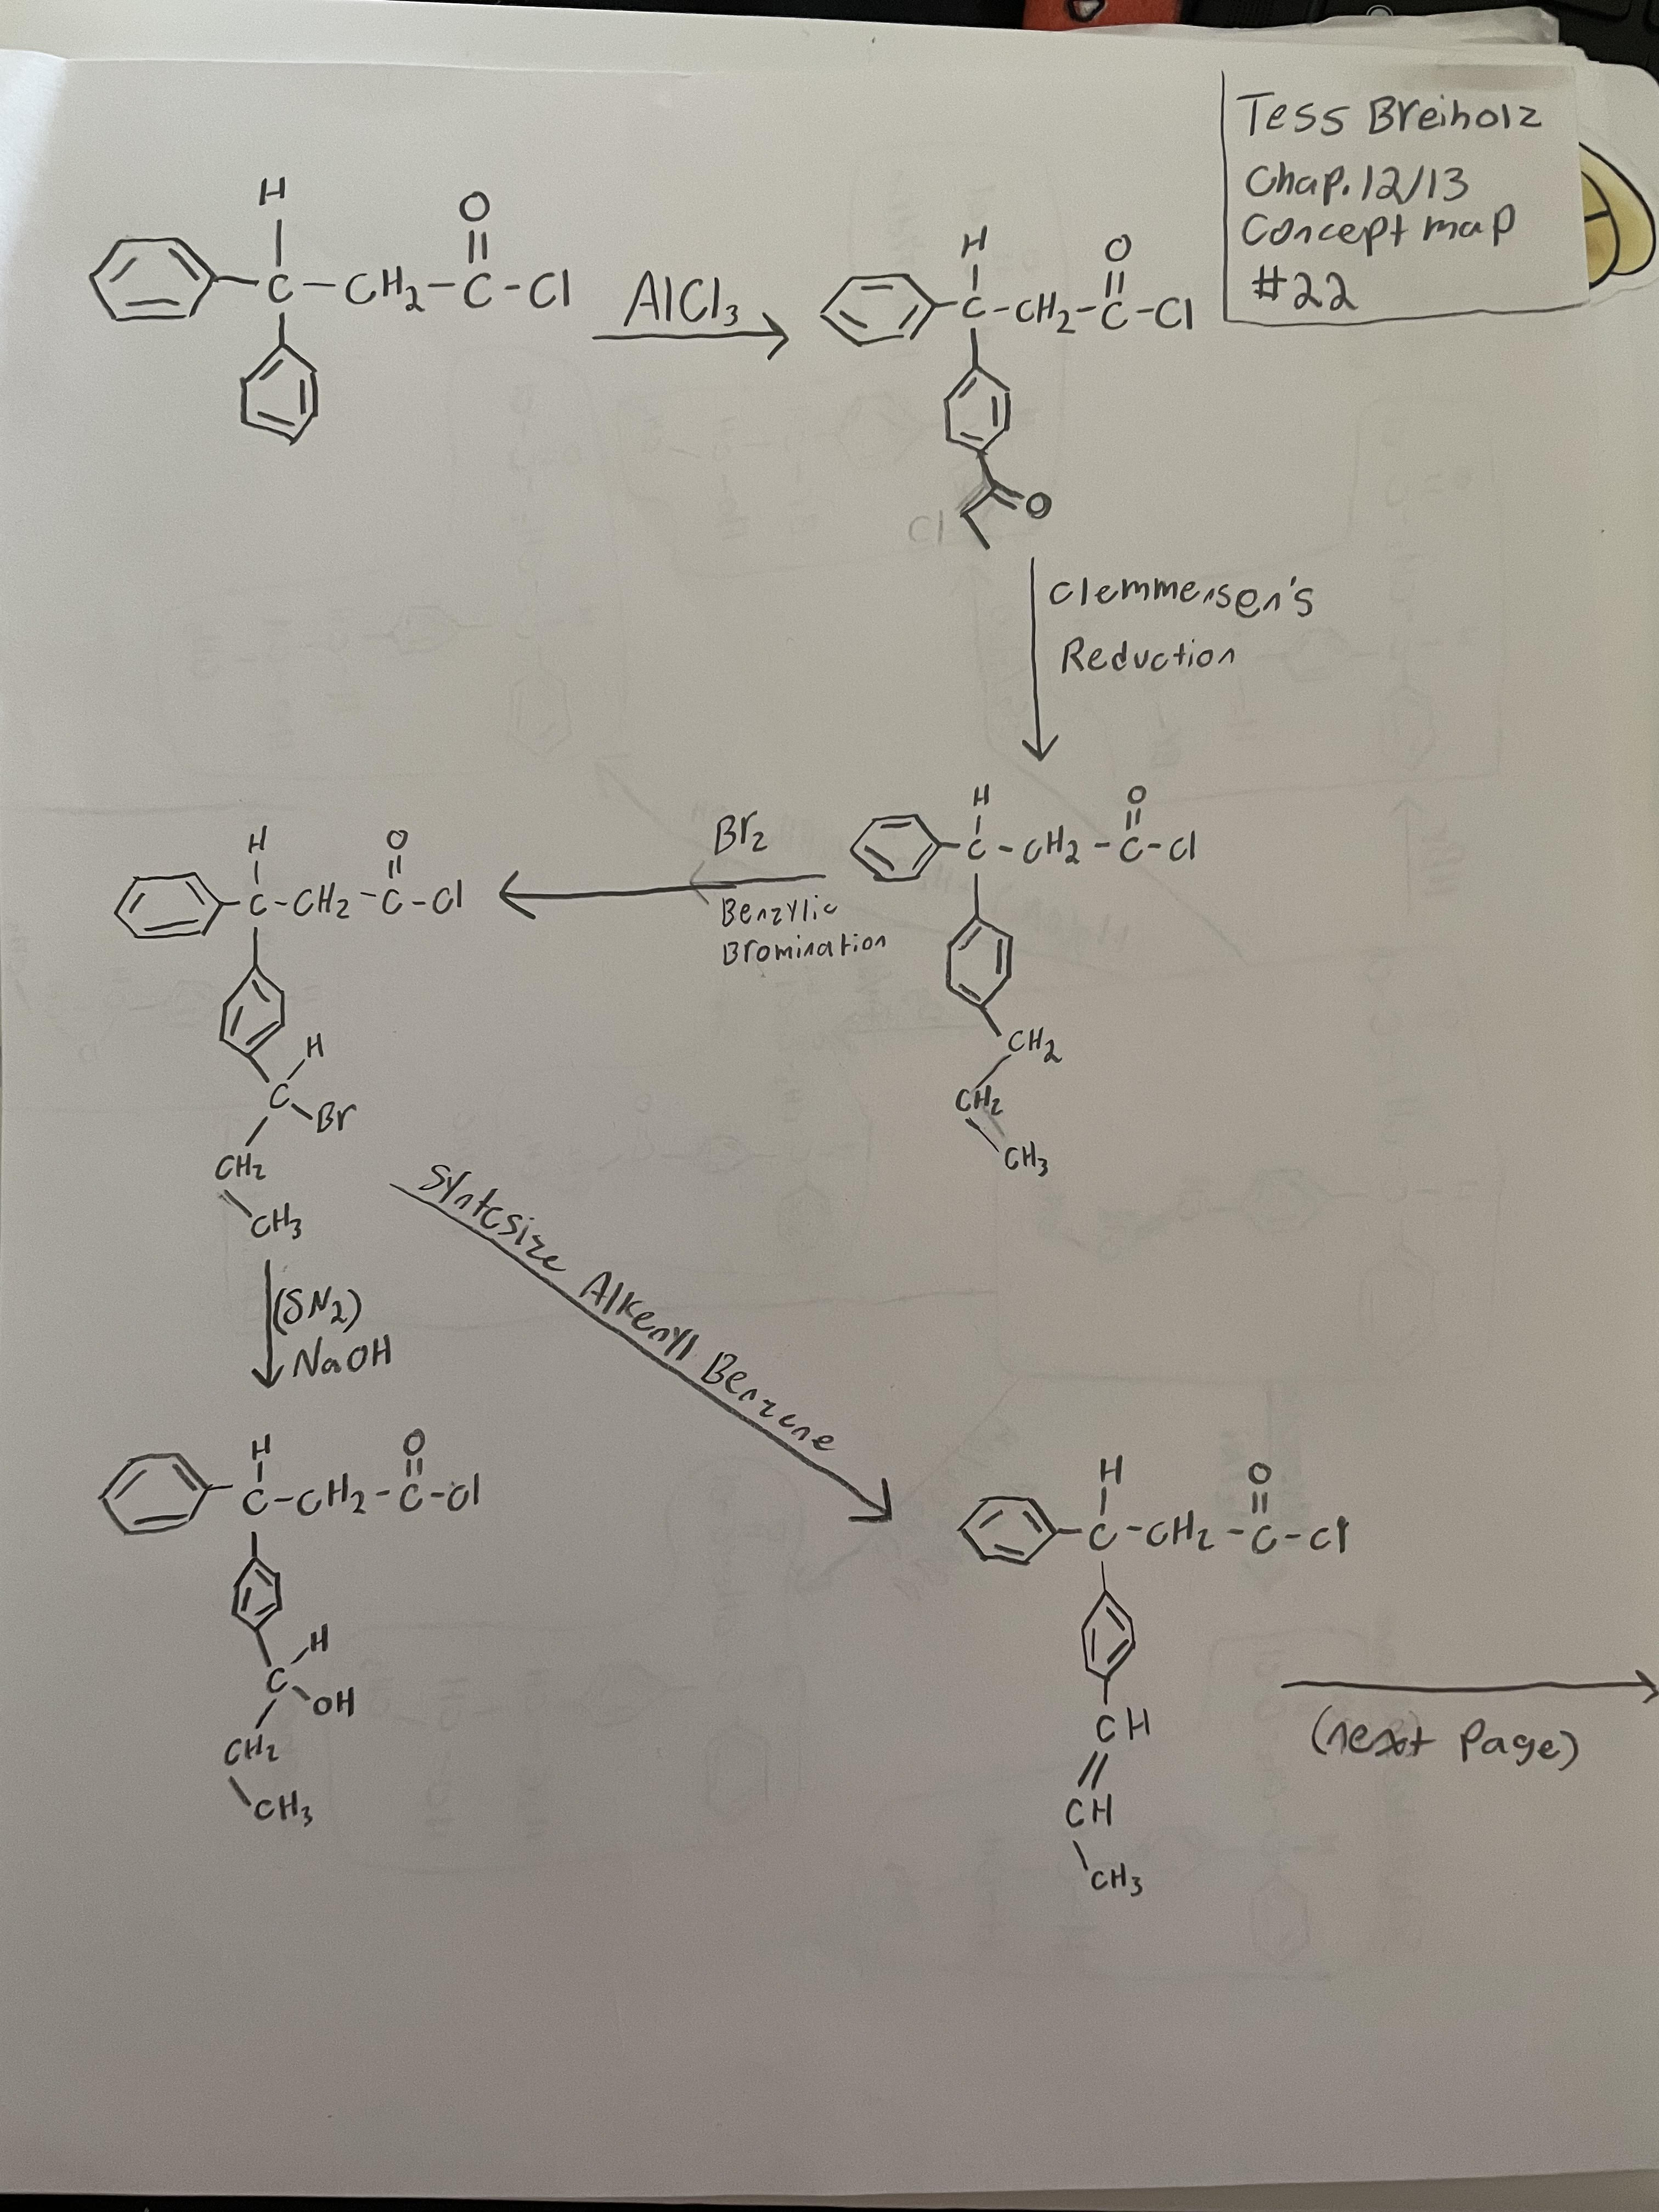 Tess Breiholz
Chap. 12/13
Concept map
#22
H
O
C-CH2-C-Cl
AlCl3
H
O
C-CH2-C-Cl
O
Cl
Clemmensen's
Reduction
H
O
C-CH2-C-Cl
CH2
CH2
CH3
Br2
Benzylic
Bromination
H
O
C-CH2-C-Cl
H
C
Br
CH2
CH3
(SN2)
NaOH
Syntesize Alkenyl Benzene
H
O
C-CH2-C-Cl
H
C
OH
CH2
CH3
H
O
C-CH2-C-Cl
CH
CH
CH3
(next Page)